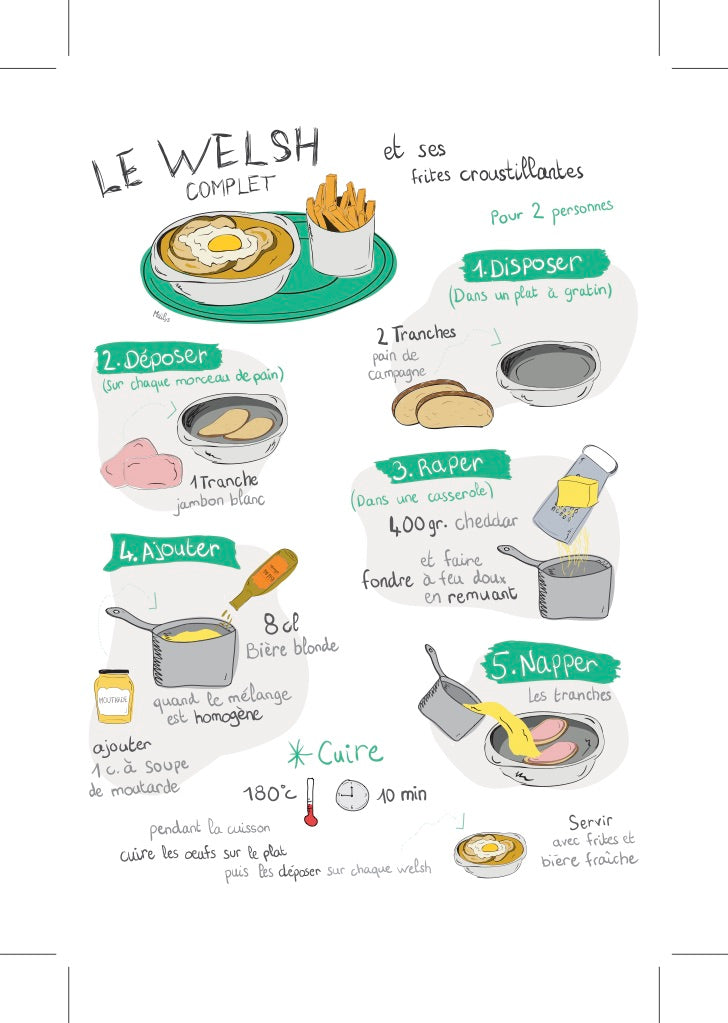 LE WELSH
COMPLET
et ses
frites croustillantes
Pour 2 personnes
1. Disposer
(Dans un plat à gratin)
2 Tranches
pain de
campagne
2. Déposer
(sur chaque morceau de pain)
1 Tranche
jambon blanc
3. Raper
(Dans une casserole)
400 gr. cheddar
et faire
fondre à feu doux
en remuant
4. Ajouter
8 cl
Bière blonde
MOUTARDE
quand le mélange
est homogène
ajouter
1 c. à soupe
de moutarde
5. Napper
les tranches
Cuire
180°c
10 min
pendant la cuisson
cuire les œufs sur le plat
puis les déposer sur chaque welsh
Servir
avec frites et
bière fraîche